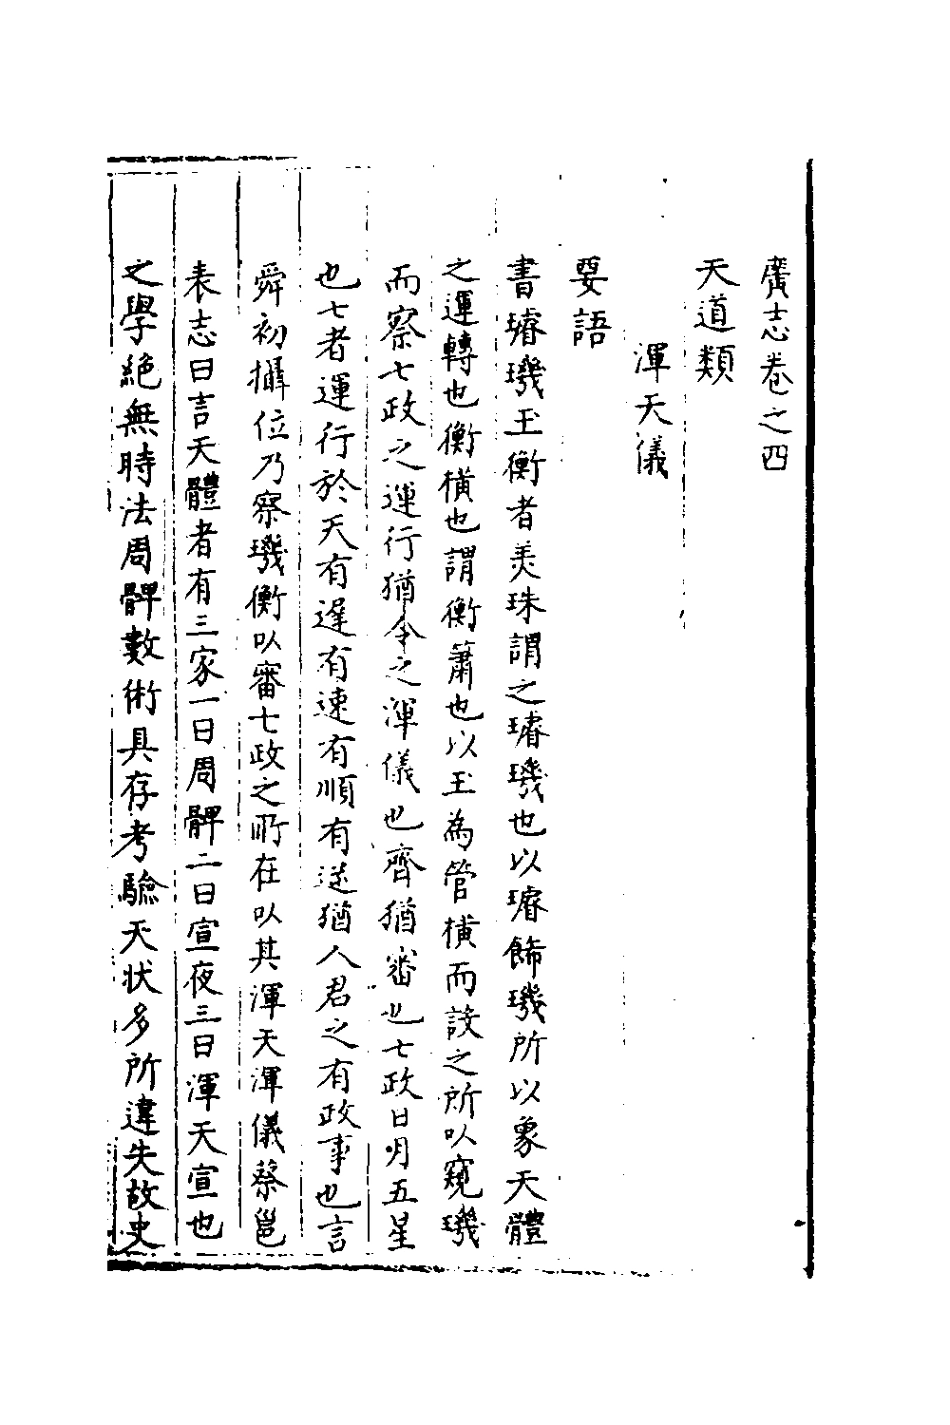 廣志卷之四
天道類
渾天儀
要語
書璿璣玉衡者美珠謂之璿璣也以璿餙璣所以象天體
之運轉也衡橫也謂衡簫也以玉為管橫而設之所以窺璣
而察七政之運行猶今之渾儀也齊猶審也七政日月五星
也七者運行於天有遲有速有順有逆猶人君之有政事也言
舜初攝位乃察璣衡以審七政之所在以其渾天渾儀蔡邕
表志曰言天體者有三家一曰周髀二曰宣夜三曰渾天宣也
之學絕無時法周髀數術具存考驗天状多所違失故史